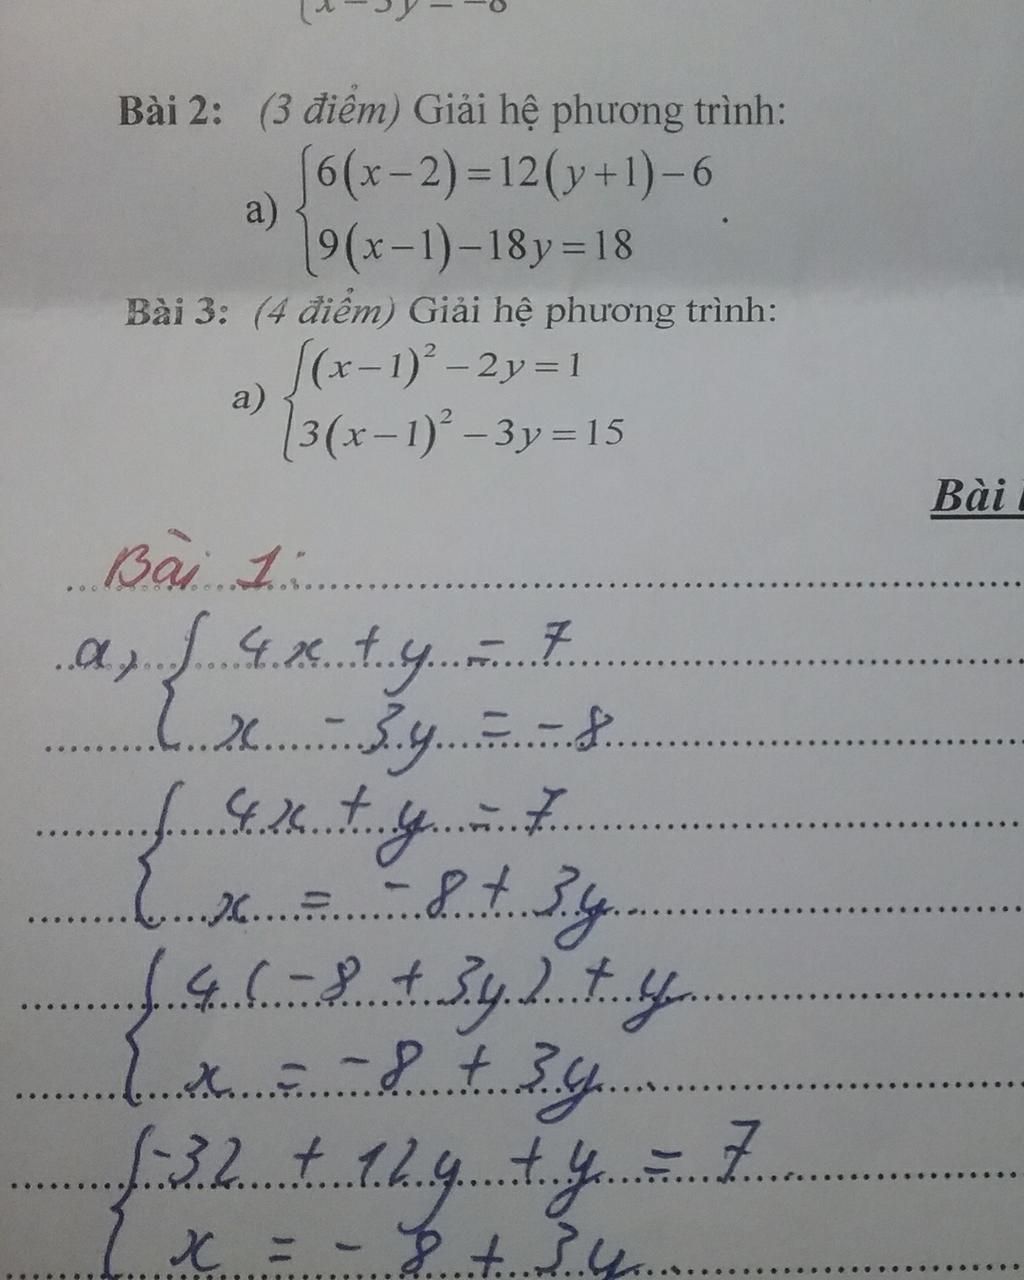 x − 3y = −8
Bài 2: (3 điểm) Giải hệ phương trình:
a) { 6(x − 2) = 12(y + 1) − 6
9(x − 1) − 18y = 18 .
Bài 3: (4 điểm) Giải hệ phương trình:
a) { (x − 1)² − 2y = 1
3(x − 1)² − 3y = 15
Bài
Bài 1:
a, { 4x + y = 7
x − 3y = −8
{ 4x + y = 7
x = −8 + 3y
{ 4(−8 + 3y) + y
x = −8 + 3y
{ −32 + 12y + y = 7
x = −8 + 3y